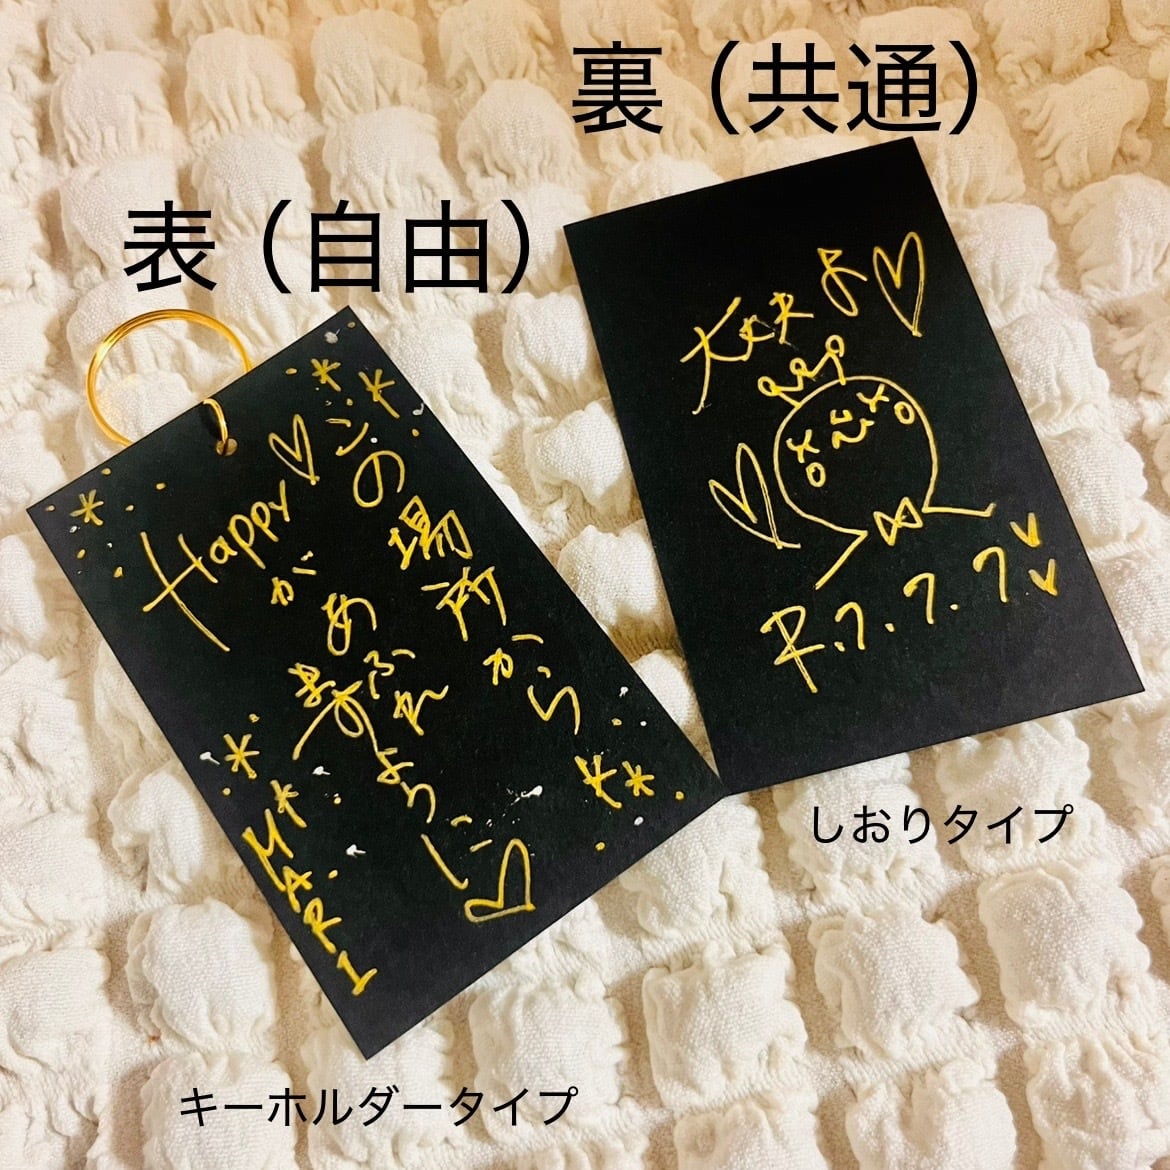 裏（共通）
表（自由）
この場所から
Happy
が
あふれ
ますように
M.A.R.I
大丈夫よ
R.7.7.7.
しおりタイプ
キーホルダータイプ